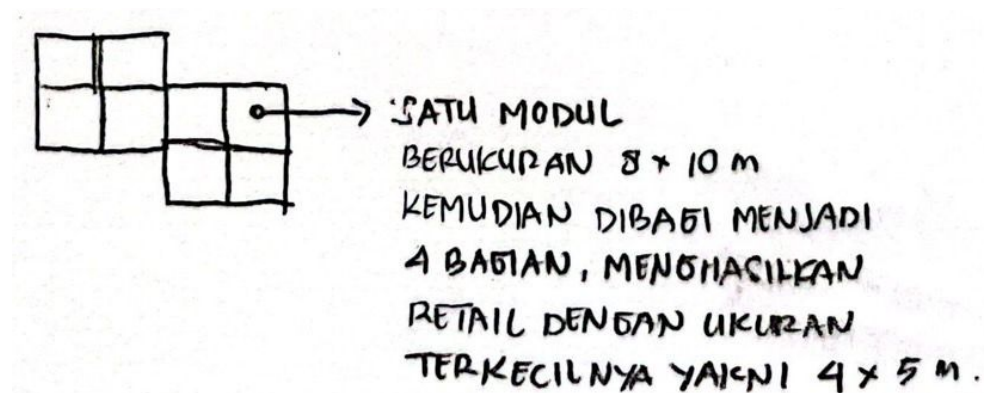 SATU MODUL
BERUKURAN 8 x 10 m
KEMUDIAN DIBAGI MENJADI
4 BAGIAN, MENGHASILKAN
RETAIL DENGAN UKURAN
TERKECILNYA YAKNI 4 x 5 m.